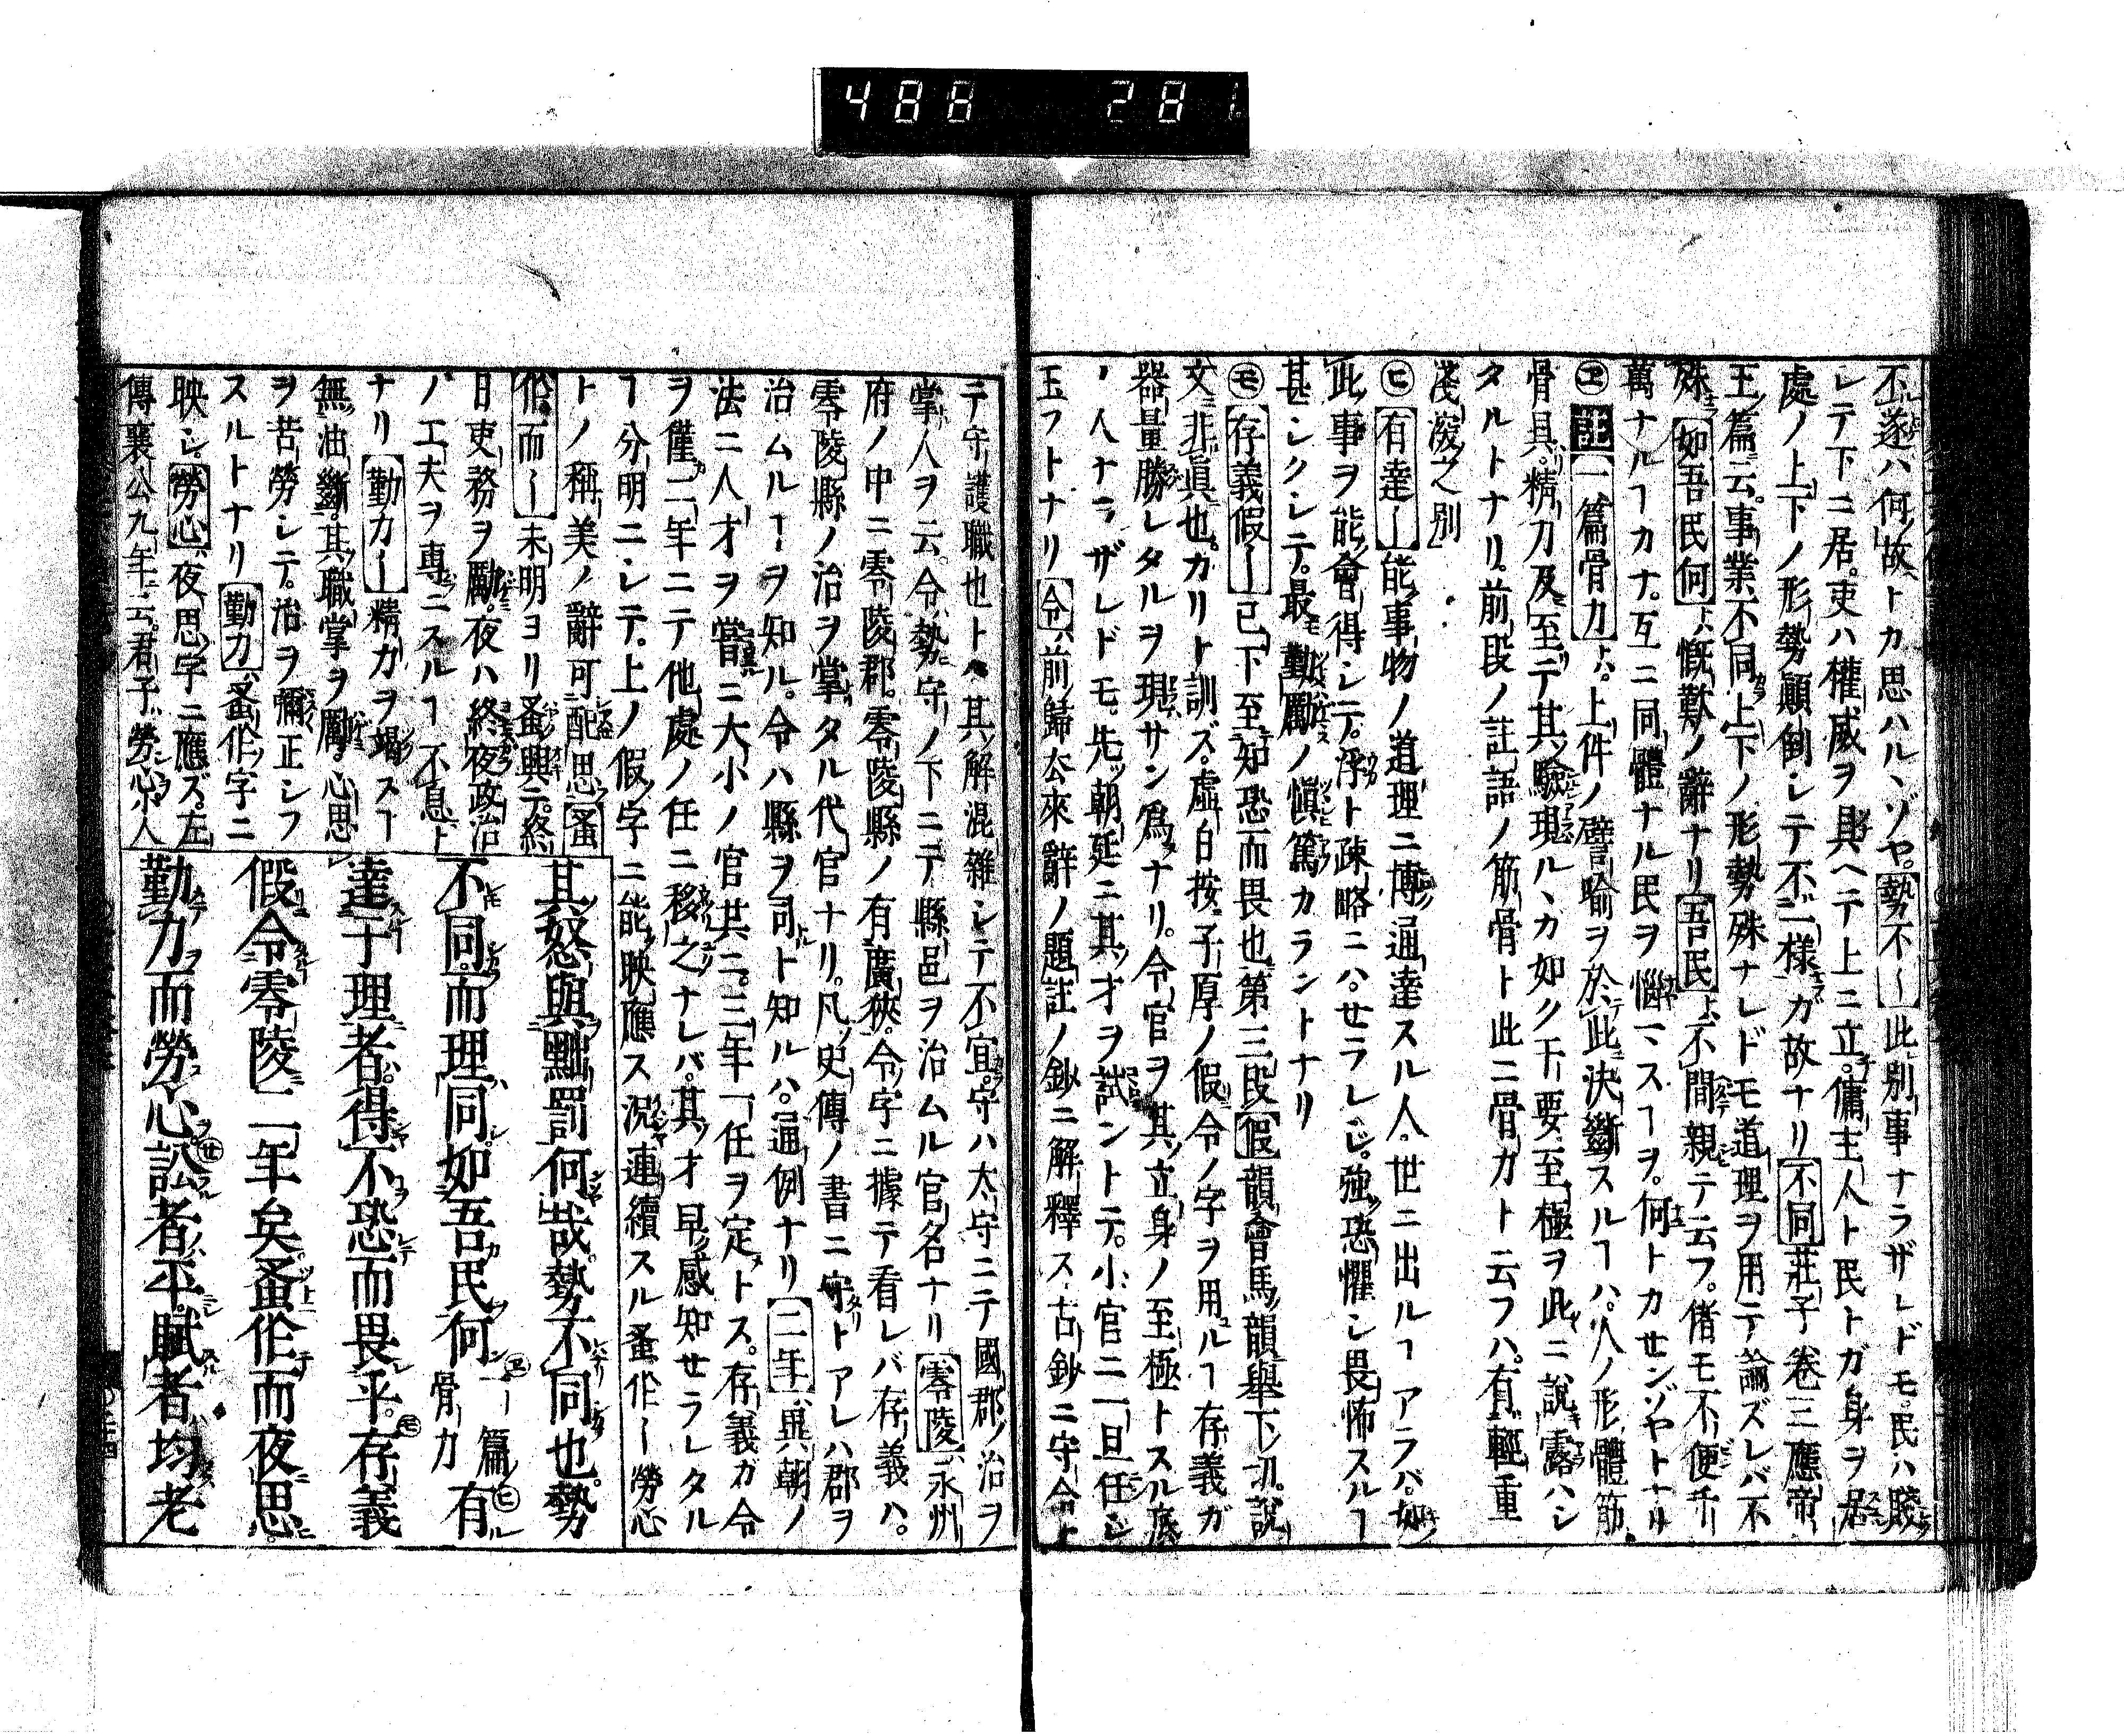 488 281
不遂ハ何ノ故トカ思ハル、ゾヤ。勢不〜此別事ナラザレドモ。民ハ賤
シテ下ニ居。吏ハ權威ヲ具ヘテ上ニ立。傭主人ト民トガ身ヲ居
處ノ上下ノ形勢顛倒シテ不一樣カ故ナリ不同莊子卷三應帝
王篇云。事業不同上下ノ形勢殊ナレドモ道理ヲ用テ論ズレバ不
殊如吾民何ハ慨歎ノ辭ナリ吾民ハ不間親テ云フ。偖モ不便千
萬ナルヿカナ。互ニ同體ナル民ヲ惱マスヿヲ。何トカセンゾヤトナリ
ヱ註一篇骨力ハ。上件ノ譬喩ヲ於此決斷スルヿハ。人ノ形體筋
骨具。精力及至テ其驗現ル、カ如ク干要至極ヲ此ニ說露ハシ
タルトナリ。前段ノ註語ノ筋骨ト此ニ骨力ト云フハ。有輕重
淺深之別
ヒ有達〜能事物ノ道理ニ博通達スル人。世ニ出ルヿアラバ。如
此事ヲ能會得シテ。浮ト疎略ニハ。セラレジ。強恐懼シ畏怖スルヿ
甚シクシテ。最勤勵ノ愼篤カラントナリ
モ存義假〜已下至知恐而畏也第三段假韻會馬韻舉下切。說
文非眞也。カリト訓ズ。虛白按子厚ノ假令ノ字ヲ用ルヿ存義ガ
器量勝レタルヲ現サン爲ナリ。令官ヲ其立身ノ至極トスル底
ノ人ナラザレドモ。先朝廷ニ其才ヲ試ントテ。小官ニ一旦任シ
玉フトナリ令前歸去來辭ノ題註ノ鈔ニ解釋ス古鈔ニ守令ト
テ守護職也トハ其解混雜シテ不宜。守ハ太守ニテ國郡ノ治ヲ
掌人ヲ云。令勢守ノ下ニテ縣邑ヲ治ムル官名ナリ零陵永州
府ノ中ニ零陵郡。零陵縣ノ有廣狹。令字ニ據テ看レバ存義ハ。
零陵縣ノ治ヲ掌タル代官ナリ。凡史傳ノ書ニ守トアレハ郡ヲ
治ムルヿヲ知ル。令ハ縣ヲ司ト知ルハ。通例ナリ二年異朝ノ
法ニ人才ヲ嘗ニ大小ノ官共ニ。三年一任ヲ定トス。存義ガ令
ヲ僅二年ニテ他處ノ任ニ移之ナレバ。其才早感知セラレタル
ヿ分明ニシテ。上ノ假字ニ能映應ス況連續スル蚤作〜勞心
トノ稱美ノ辭可配思蚤
作而〜未明ヨリ蚤興テ。終
日吏務ヲ勵。夜ハ終夜政治
ノ工夫ヲ專ニスルヿ不息ト
ナリ勤力〜精力ヲ竭スヿ
無油斷。其職掌ヲ勵。心思
ヲ苦勞シテ。治ヲ彌正シフ
スルトナリ勤力蚤作字ニ
映シ。勞心夜思字ニ應ズ。左
傳襄公九年云。君子勞心小人
其怒與黜罰何哉。勢不同也。勢
不同而理同。如吾民何ヱ一篇骨力ヒ有
達于理者。得不恐而畏乎。モ存義
假令零陵二年矣。蚤作而夜思。
勤力而勞心。セ訟者平。賦者均。老